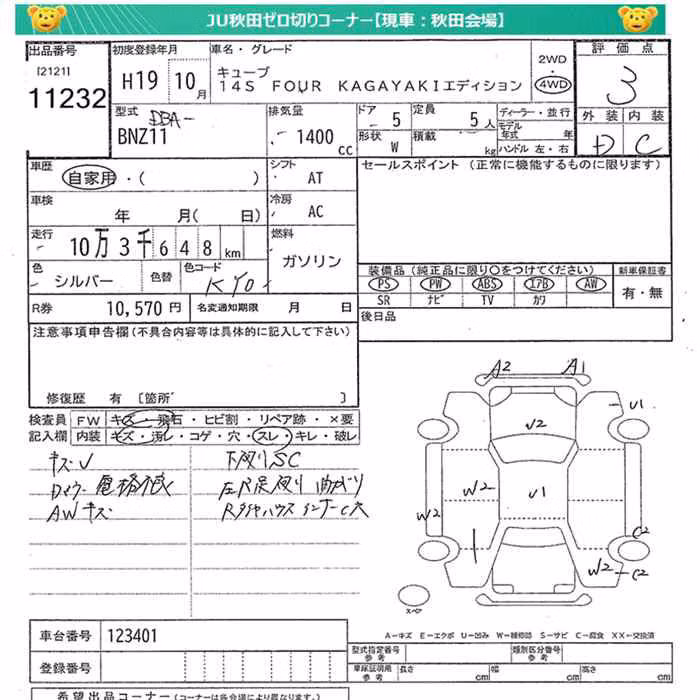 JU秋田ゼロ切りコーナー【現車：秋田会場】
出品番号 初度登録年月 車名・グレード 2WD 評価点
[2121] H19 10月 キューブ 4WD 3
11232 14S FOUR KAGAYAKIエディション
外装 内装
型式 DBA- 排気量 ドア 定員 ディーラー・並行 D C
BNZ11 1400cc 5 5人 モデル年式 年
形状 積載 ハンドル 左・右
W kg
車歴 シフト セールスポイント（正常に機能するものに限ります）
自家用・（ ） AT
車検 冷房
年 月（ 日） AC
走行 燃料
10万3千648km ガソリン
色 色替 色コード 装備品（純正品に限り○をつけてください） 新車保証書
シルバー KY0 PS PW ABS エアB AW 有・無
SR ナビ TV カワ
R券 10,570円 名変通知期限 月 日 後日品
注意事項申告欄（不具合内容等は具体的に記入して下さい）
修復歴 有 [箇所 ]
検査員 FW キズ・飛石・ヒビ割・リペア跡・×要
記入欄 内装 キズ・汚レ・コゲ・穴・スレ・キレ・破レ
キズU 下廻りSC
AWキズ
A2 A1
U1
U2
W2 U1
W2 C2
W2 C2
スペア
A－キズ E－エクボ U－凹み W－補修跡 S－サビ C－腐食 XX－交換済
車台番号 123401 型式指定番号 参考 類別区分番号 参考
登録番号 車庫証明用 参考 長さ cm 幅 cm 高さ cm
希望出品コーナー（コーナーは各会場により異なります。）